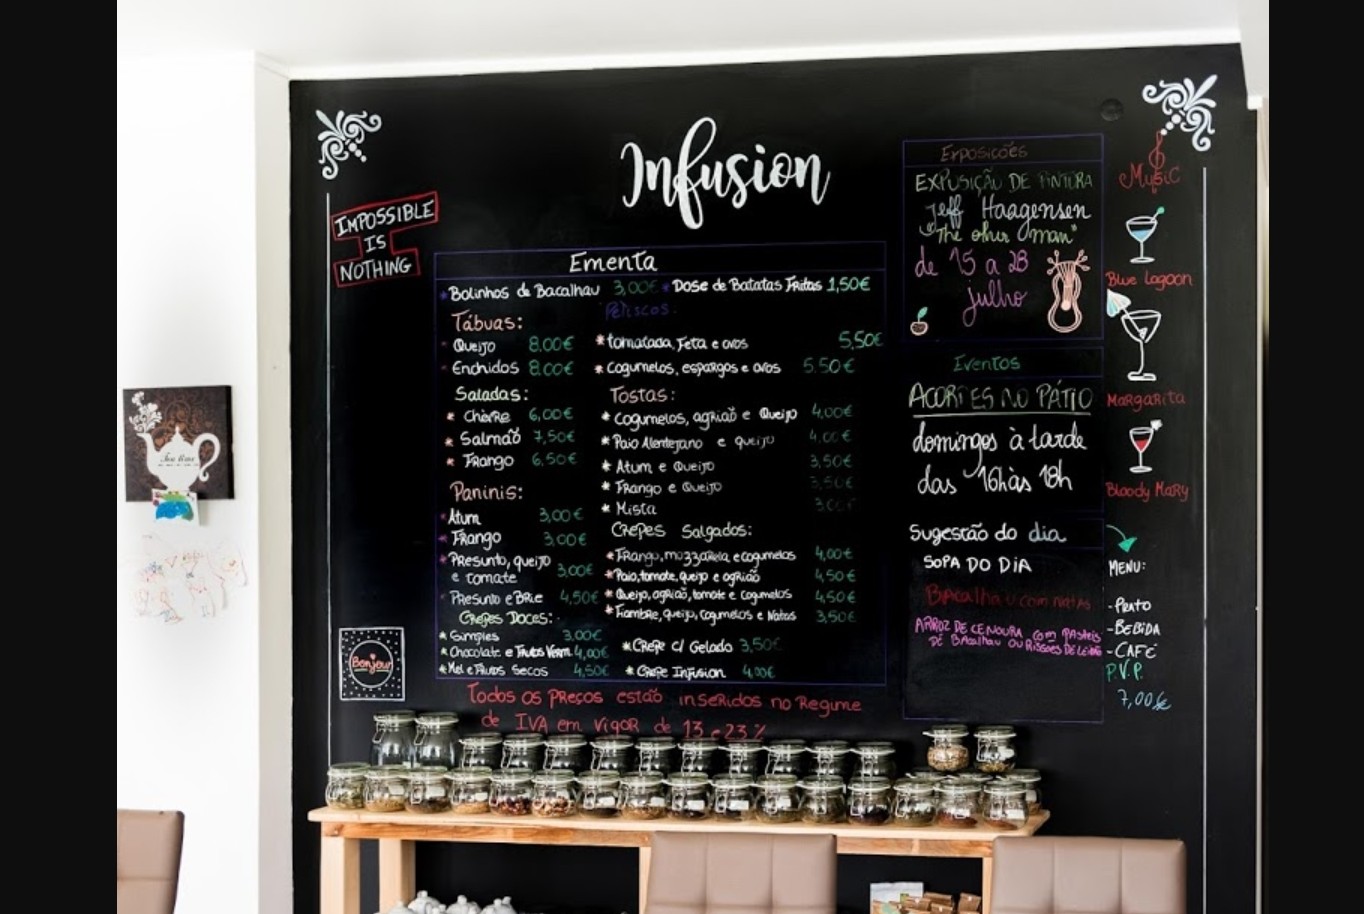 Infusion
IMPOSSIBLE
IS
NOTHING
Ementa
* Bolinhos de Bacalhau 3,00€ * Dose de Batatas Fritas 1,50€
Tábuas:
* Queijo 8.00€
* Enchidos 8.00€
Saladas:
* Chèvre 6,00€
* Salmão 7,50€
* Frango 6,50€
Paninis:
* Atum 3,00€
* Frango 3,00€
* Presunto, queijo
e tomate 3,00€
* Presunto e Brie 4,50€
Crepes Doces:
* Simples 3,00€
* Chocolate e Frutos Verm. 4,00€
* Mel e Frutos Secos 4,50€
Petiscos:
* tomatada, Feta e ovos 5,50€
* Cogumelos, espargos e ovos 5.50€
Tostas:
* Cogumelos, agrião e Queijo 4,00€
* Paio Alentejano e queijo 4,00€
* Atum e Queijo 3,50€
* Frango e Queijo 3,50€
* Mista 3,00€
Crepes Salgados:
* Frango, mozzarela e cogumelos 4,00€
* Paio, tomate, queijo e agrião 4,50€
* Queijo, agrião, tomate e cogumelos 4,50€
* Fiambre, queijo, Cogumelos e Natas 3,50€
* Crepe c/ Gelado 3,50€
* Crepe Infusion 4,00€
Todos os Preços estão inseridos no Regime
de IVA em vigor de 13 e 23%
Exposições
EXPOSIÇÃO DE PINTURA
Jeff Haagensen
"The other man"
de 15 a 28
julho
Eventos
ACORDES NO PÁTIO
domingos à tarde
das 16h às 18h
Sugestão do dia
SOPA DO DIA
Bacalhau com Natas
ARROZ DE CENOURA com PASTEIS
DE Bacalhau OU RISSOES DE LEITÃO
Music
Blue Lagoon
Margarita
Bloody Mary
MENU:
-Prato
-BEBIDA
-CAFÉ
P.V.P.
7,00€
Tea time
Bonjour